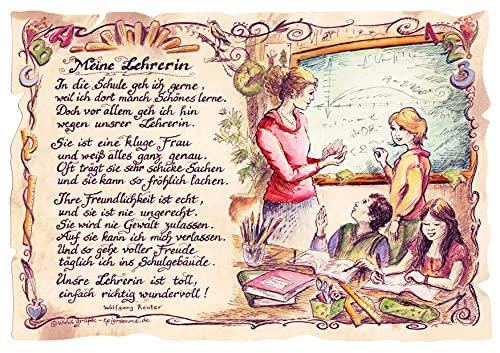 Meine Lehrerin
In die Schule geh ich gerne,
weil ich dort manch Schönes lerne.
Doch vor allem geh ich hin
wegen unsrer Lehrerin.
Sie ist eine kluge Frau
und weiß alles ganz genau.
Oft trägt sie sehr schicke Sachen
und sie kann so fröhlich lachen.
Ihre Freundlichkeit ist echt,
und sie ist nie ungerecht.
Sie wird nie Gewalt zulassen.
Auf sie kann ich mich verlassen.
Und so gehe voller Freude
täglich ich ins Schulgebäude.
Unsre Lehrerin ist toll,
einfach richtig wundervoll!
Wolfgang Reuter
©www.graphic-epigramme.de